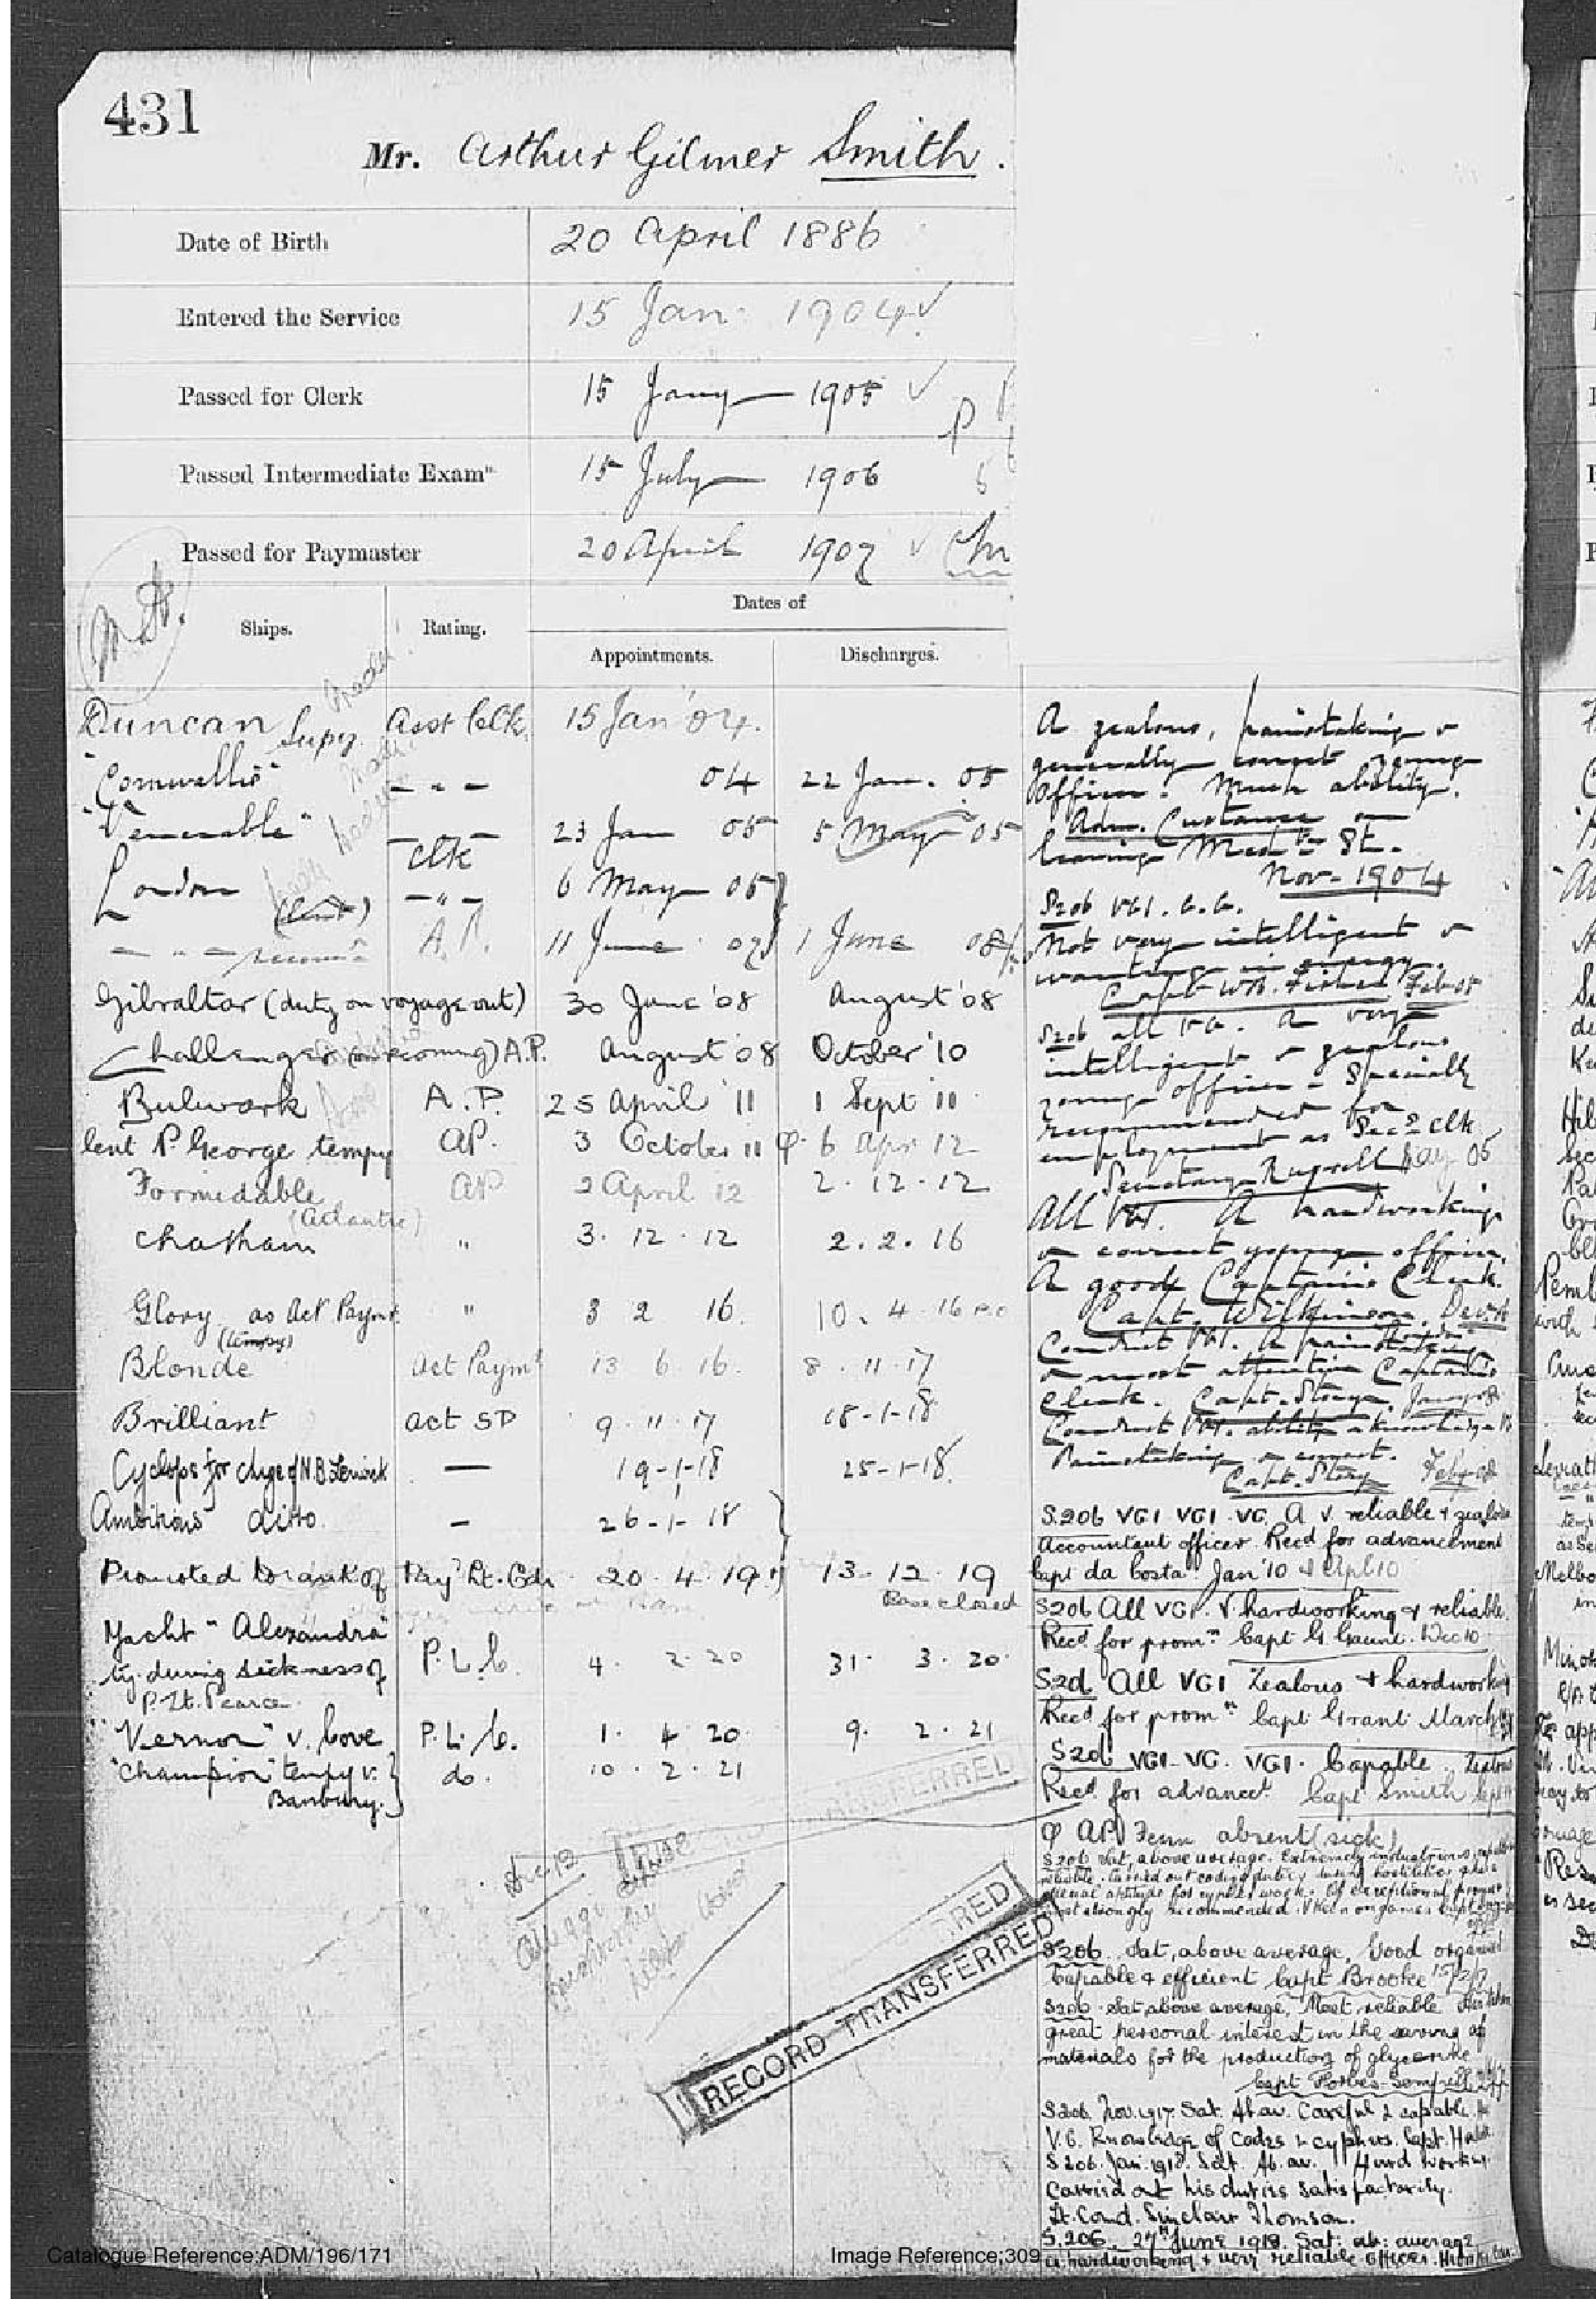 431
Mr. Arthur Gilmer Smith.
Date of Birth 20 April 1886
Entered the Service 15 Jan. 1904 ✓
Passed for Clerk 15 Jany 1905 ✓
Passed Intermediate Examn 15 July 1906
Passed for Paymaster 20 April 1907 ✓
Ships. Rating. Dates of
Appointments. Discharges.
Duncan Supy Asst Clk 15 Jan '04.
"Cornwallis" - " - 04 22 Jan. 05
"Venerable" 23 Jan 05 5 May 05
London Clk 6 May 05
- " - A.P. 11 June 07 1 June 08
Gibraltar (duty on voyage out) 30 June '08 August '08
Challenger (on recomg) A.P. August '08 October '10
Bulwark A.P. 25 April 11 1 Sept 11
lent P. George tempy AP. 3 October 11 φ 6 Apr 12
Formidable AP 2 April 12 2.12.12
(Atlantic)
Chatham " 3.12.12 2.2.16
Glory as Act Paymr " 3 2 16. 10.4.16
(tempy)
Blonde Act Paymr 13 6 16. 8.11.17
Brilliant Act SP 9.11.17 18-1-18
Cyclops for chge of N.B. Lerwick — 19-1-18 25-1-18.
Ambitious ditto - 26-1-18
Promoted to rank of Payr Lt. Cdr 20.4.19 13-12.19
Base closed
Yacht "Alexandra"
ty. during sickness of P.L.C. 4. 2.20 31. 3.20.
P. Lt. Pearce
"Vernon" v. Cove P.L.C. 1. 4 20 9. 2.21
"Champion" tempy v. do. 10.2.21
Banbury.
A zealous, painstaking &
generally correct young
Officer. Much ability.
Adm. Custance on
leaving Medn St.
Nov. 1904
S206 VGI. G.G.
Not very intelligent &
wanting in energy.
Capt W.B. Fisher Feb 05
S206 all V.G. A very
intelligent & zealous
young officer - Specially
recommended for
employment as Secs Clk
Secretary Russell May 05
All VGI. A hardworking
& correct young officer.
A good Captain's Clerk.
Capt. Wilkinson.
Conduct VGI. A painstaking
& most attentive Captain's
Clerk. Capt. Storey, Jany 08
Conduct VGI. ability & knowledge
Painstaking & correct.
Capt. Storey Feby 08
S.206 VGI VGI VG. A v. reliable & zealous
Accountant officer. Recd for advancement
Capt da Costa. Jan '10 & Apl 10
S206 All VGI. V. hardworking & reliable
Recd for promn Capt G Gaunt. Dec 10
S206 All VGI Zealous & hardworking
Recd for promn Capt Grant March
S206 VGI-VG. VGI. Capable. Zealous
Recd for advanct. Capt Smith Sept
φ AP Fenn absent (sick)
S206 Sat, above average. Extremely industrious,
reliable. Carried out coding duties during hostilities
special aptitude for cypher work. Of exceptional
most strongly recommended.
S206. Sat, above average. Good organiser
Capable & efficient Capt Brooke
S206. Sat, above average, Most reliable Has taken
great personal interest in the saving of
materials for the production of glycerine
Capt Forbes-Sempill
S206. Nov. 1917. Sat. Ab av. Careful & capable.
V.G. Knowledge of Codes & cyphers. Capt.
S206. Jan. 1918. Sat. Ab. av. Hard working.
Carried out his duties satisfactorily.
Lt. Comd. Sinclair Thomson.
S.206. 27th June 1918. Sat: ab: average
a hardworking & very reliable officer.
RECORD TRANSFERRED
Catalogue Reference:ADM/196/171
Image Reference:309